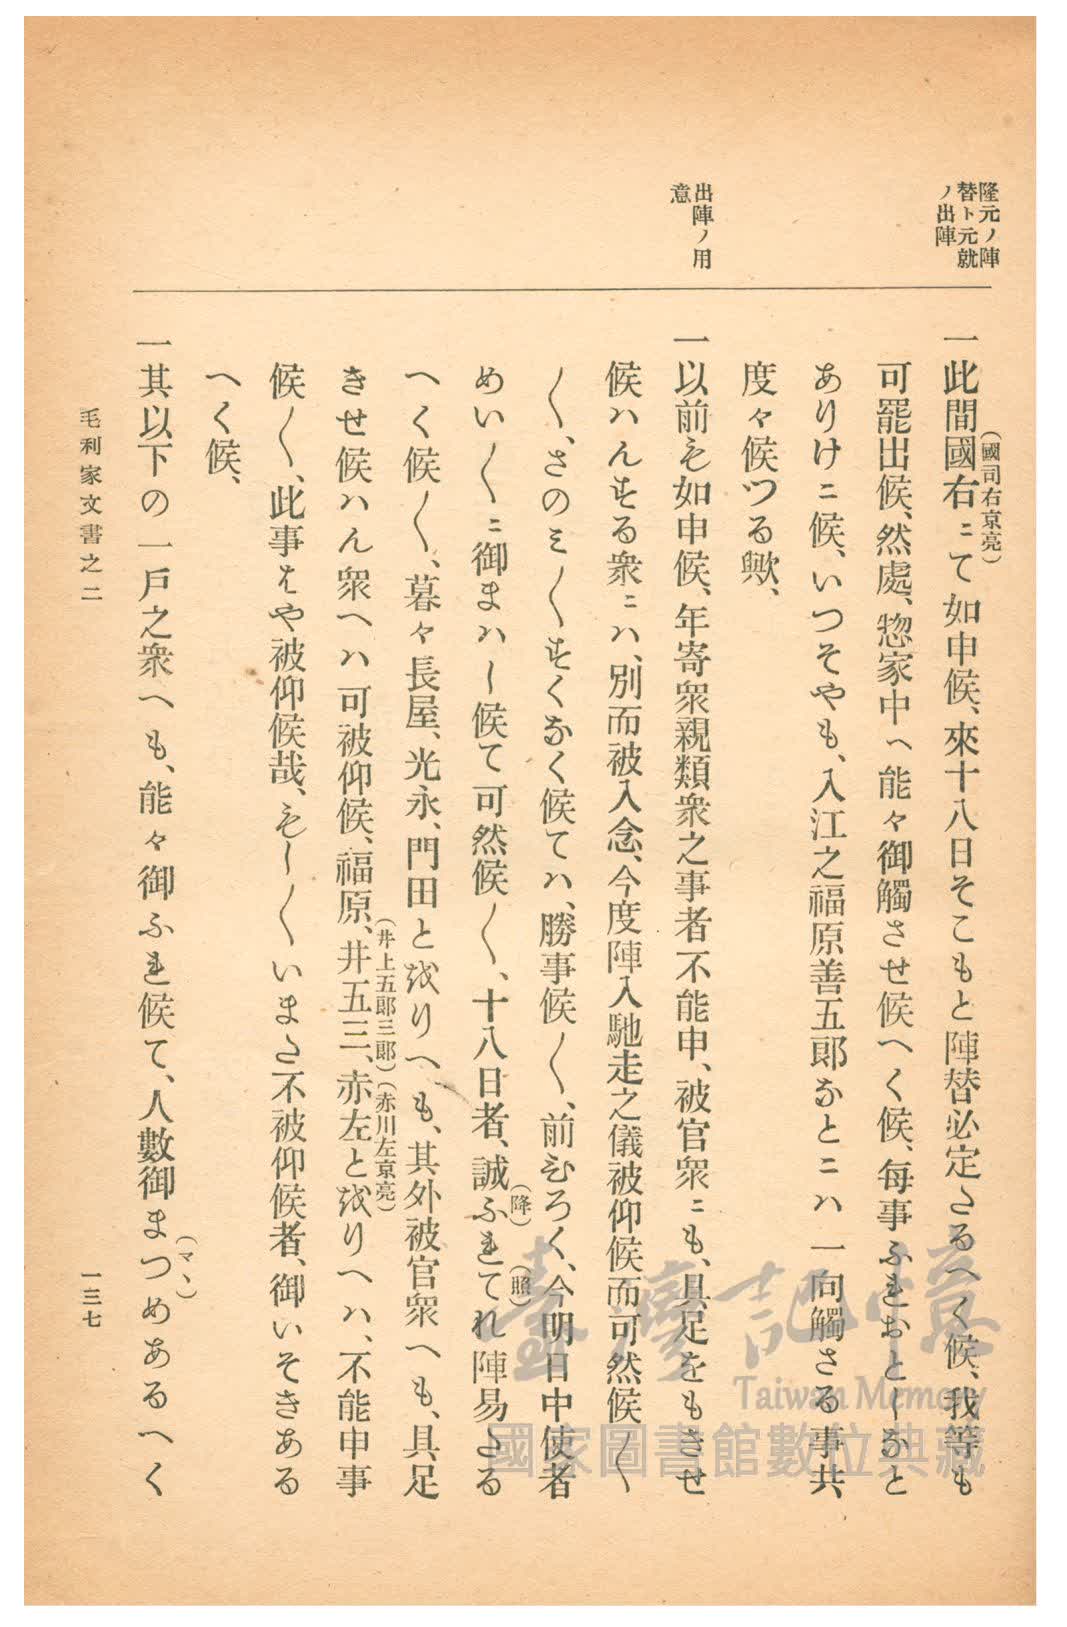 隆元ノ陣
替ト元就
ノ出陣
出陣ノ用
意
一此間國右ニて如申候、來十八日そこもと陣替必定たるへく候、我等も
(國司右京亮)
可罷出候、然處、惣家中へ能々御觸させ候へく候、每事ふれおとしなと
ありけニ候、いつそやも、入江之福原善五郎なとニハ一向觸さる事共、
度々候つる歟、
一以前も如申候、年寄衆親類衆之事者不能申、被官衆ニも、具足をもさせ
候ハんする衆ニハ、別而被入念、今度陣入馳走之儀被仰候而可然候〱
〱、さのミ〱すくなく候てハ、勝事候〱、前ひろく、今明日中使者
めい〱ニ御まハし候て可然候〱、十八日者、誠ふれてれ陣易たる
(降)
(照)
へく候〱、暮々長屋、光永、門田とおりへも、其外被官衆へも、具足
きせ候ハん衆へハ可被仰候、福原、井五三、赤左とおりへハ、不能申事
(井上五郎三郎)
(赤川左京亮)
候〱、此事はや被仰候哉、もし〱いまた不被仰候者、御いそきある
へく候、
一其以下の一戶之衆へも、能々御ふれ候て、人數御まつめあるへく
(マヽ)
毛利家文書之二
一三七
臺灣記憶
Taiwan Memory
國家圖書館數位典藏